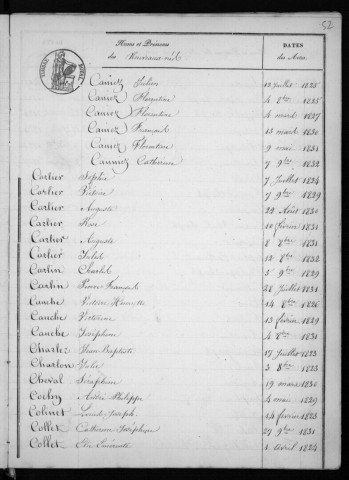 52
Noms et Prénoms des Nouveaux-nés DATES des Actes.
Julien 12 Juillet 1825
Florentine 4 8bre 1825
Florentine 4 mars 1827
François 13 mars 1830
Florentine 9 mai 1831
Catherine 7 9bre 1832
Cartier Sophie 7 Juillet 1824
Cartier Victoire 7 9bre 1829
Cartier Auguste 22 Août 1830
Cartier Rose 10 février 1831
Cartier Auguste 8 8bre 1831
Cartier 12 8bre 1832
Carlin Charles 9bre 1829
Carlin Pierre François 28 Juillet 1831
Cauche Victoire 14 8bre 1826
Cauche Victorine 13 février 1829
Cauche Joséphine 4 8bre 1831
Charles Jean Baptiste 17 Juillet 1823
Charlon Jules 3 8bre 1823
Cheval Séraphine 19 mars 1830
Cochy André Philippe 4 mai 1829
Colinet Louis Joseph 14 février 1823
Collet Catherine Joséphine 27 9bre 1831
Collet 1 avril 1824